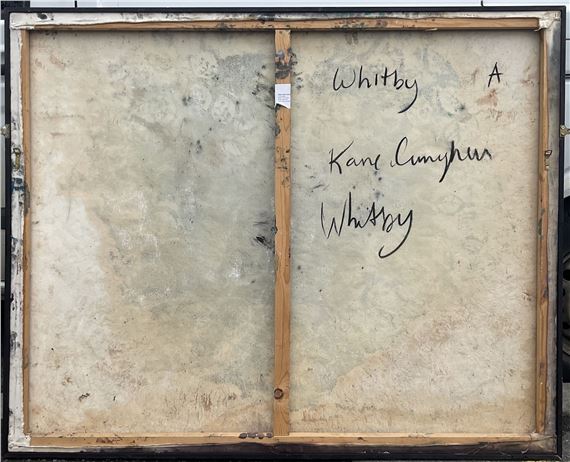 Whitby A
Kane Cunnghan
Whitby